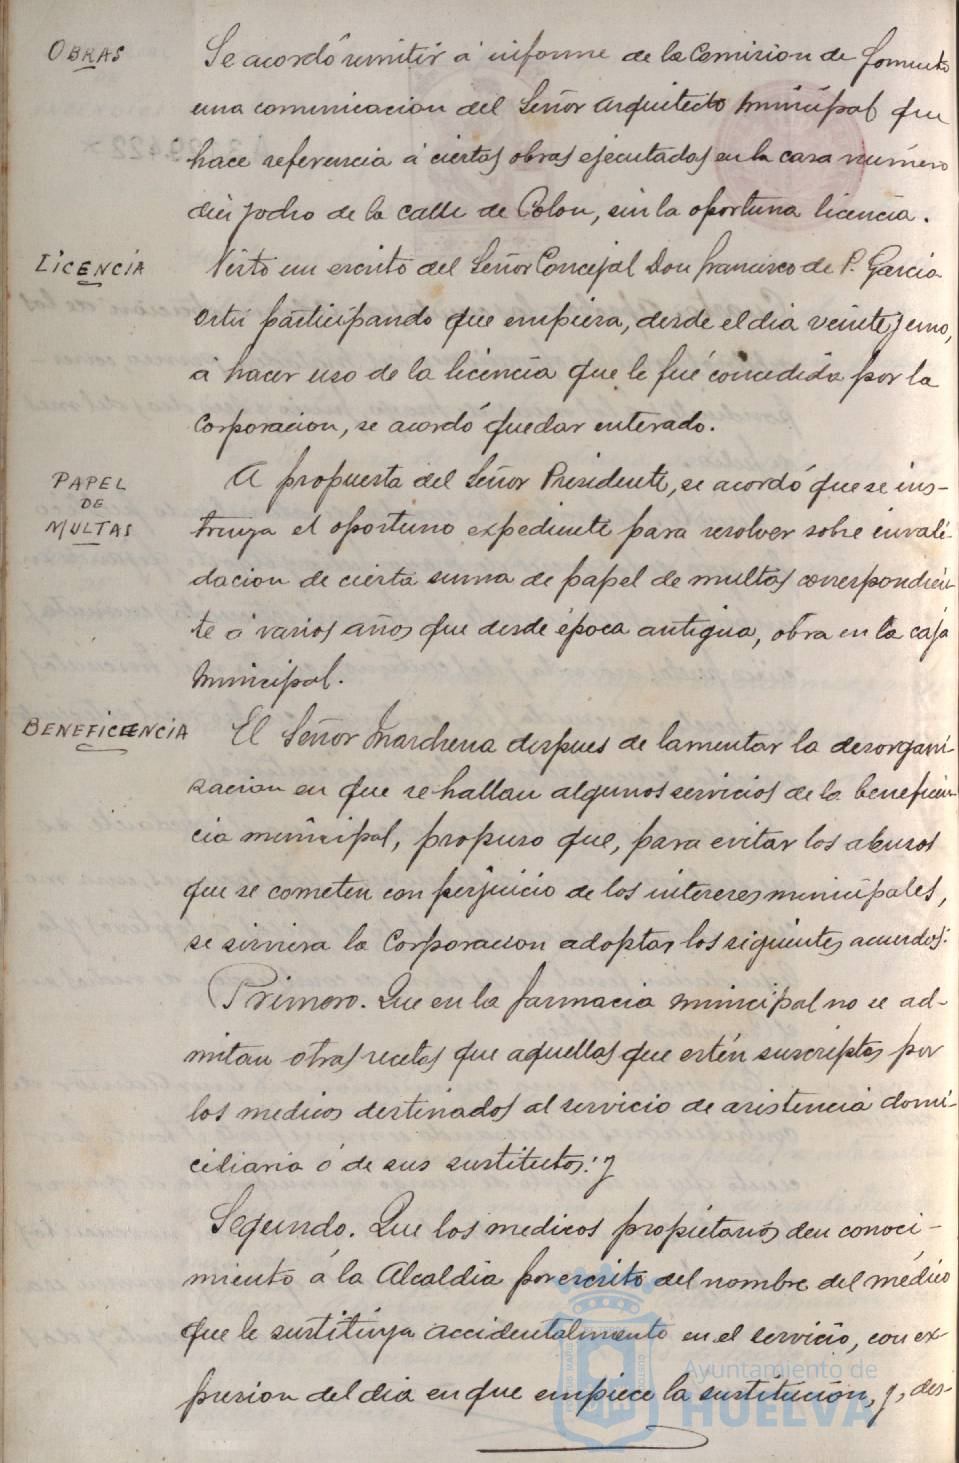 OBRAS
Se acordó remitir á informe de la Comision de fomento
una comunicacion del Señor Arquitecto municipal que
hace referencia á ciertas obras ejecutadas en la casa número
diez y ocho de la calle de Colon, sin la oportuna licencia.
LICENCIA
Visto un escrito del Señor Concejal Don Francisco de P. Garcia
Ortiz participando que empieza, desde el dia veinte y uno,
á hacer uso de la licencia que le fué concedida por la
Corporacion, se acordó quedar enterado.
PAPEL
DE
MULTAS
A propuesta del Señor Presidente, se acordó que se ins-
truya el oportuno expediente para resolver sobre invali-
dacion de cierta suma de papel de multas correspondien-
te á varios años que desde época antigua, obra en la caja
municipal.
BENEFICENCIA
El Señor Marchena despues de lamentar la desorgani-
zacion en que se hallan algunos servicios de la beneficen-
cia municipal, propuso que, para evitar los abusos
que se cometen con perjuicio de los intereses municipales,
se sirviera la Corporacion adoptar los siguientes acuerdos:
Primero. Que en la farmacia municipal no se ad-
mitan otras recetas que aquellas que estén suscriptas por
los medicos destinados al servicio de asistencia domi-
ciliaria ó de sus sustitutos: y
Segundo. Que los medicos propietarios den conoci-
miento á la Alcaldia por escrito del nombre del médico
que le sustituya accidentalmente en el servicio, con ex-
presion del dia en que empiece la sustitución, y, des-
Ayuntamiento de
HUELVA